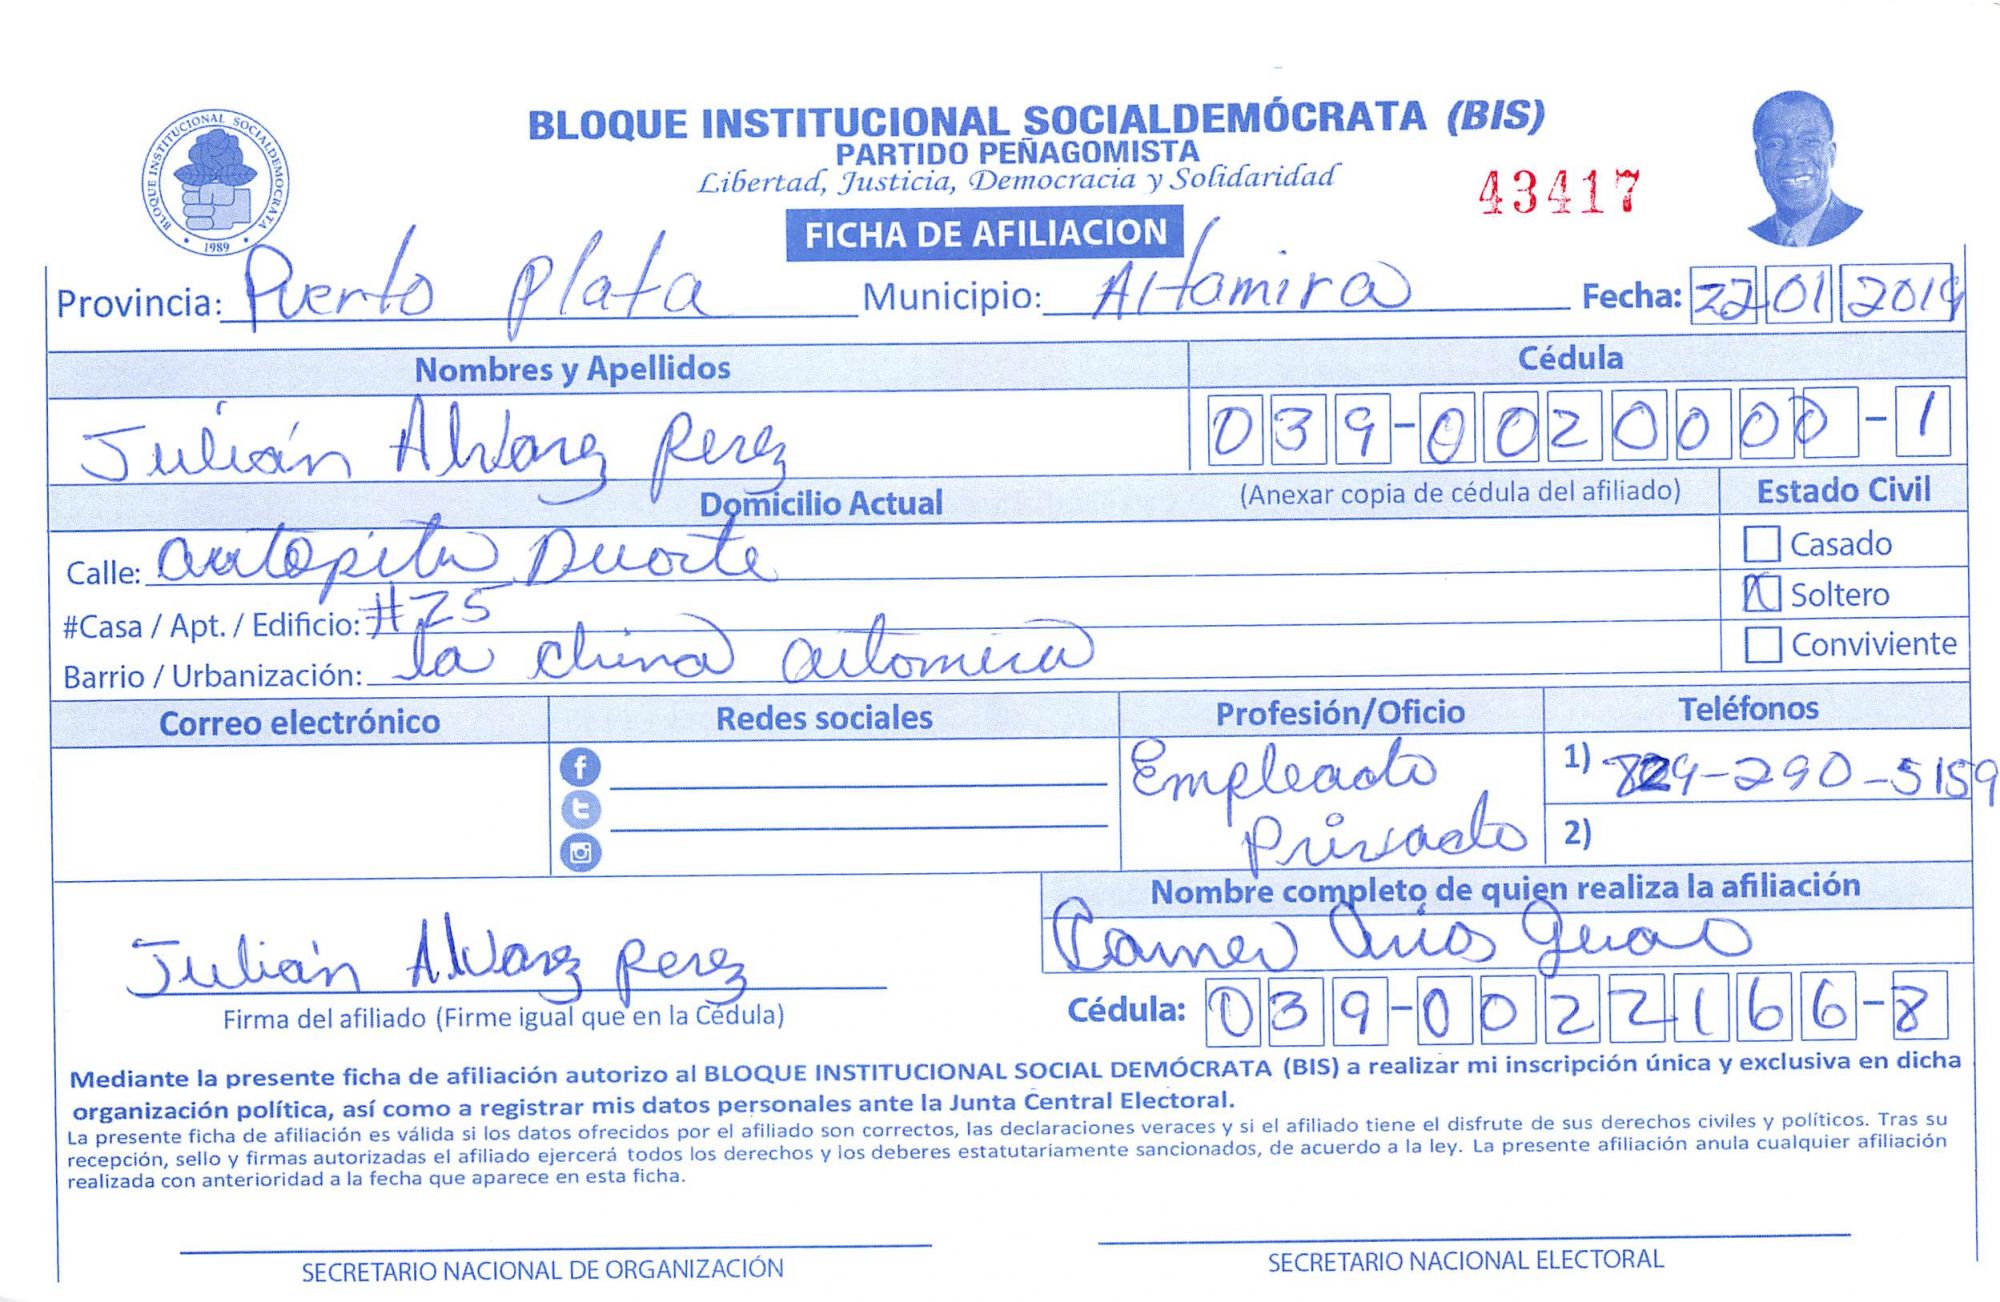 BLOQUE INSTITUCIONAL SOCIALDEMÓCRATA (BIS)
BLOQUE INSTITUCIONAL SOCIALDEMOCRATA
1989
PARTIDO PEÑAGOMISTA
Libertad, Justicia, Democracia y Solidaridad
43417
FICHA DE AFILIACION
Provincia: Puerto Plata Municipio: Altamira Fecha: 22 01 2019
Nombres y Apellidos Cédula
Julián Alvarez Perez 039-0020000-1
Domicilio Actual (Anexar copia de cédula del afiliado) Estado Civil
Calle: autopita Duarte Casado
#Casa / Apt. / Edificio: #25 Soltero
Barrio / Urbanización: la china Conviviente
Correo electrónico Redes sociales Profesión/Oficio Teléfonos
Empleado 1) 829-290-5159
Privado 2)
Nombre completo de quien realiza la afiliación
Julián Alvarez Perez
Firma del afiliado (Firme igual que en la Cédula) Cédula: 039-0022166-8
Mediante la presente ficha de afiliación autorizo al BLOQUE INSTITUCIONAL SOCIAL DEMÓCRATA (BIS) a realizar mi inscripción única y exclusiva en dicha
organización política, así como a registrar mis datos personales ante la Junta Central Electoral.
La presente ficha de afiliación es válida si los datos ofrecidos por el afiliado son correctos, las declaraciones veraces y si el afiliado tiene el disfrute de sus derechos civiles y políticos. Tras su
recepción, sello y firmas autorizadas el afiliado ejercerá todos los derechos y los deberes estatutariamente sancionados, de acuerdo a la ley. La presente afiliación anula cualquier afiliación
realizada con anterioridad a la fecha que aparece en esta ficha.
SECRETARIO NACIONAL DE ORGANIZACIÓN SECRETARIO NACIONAL ELECTORAL